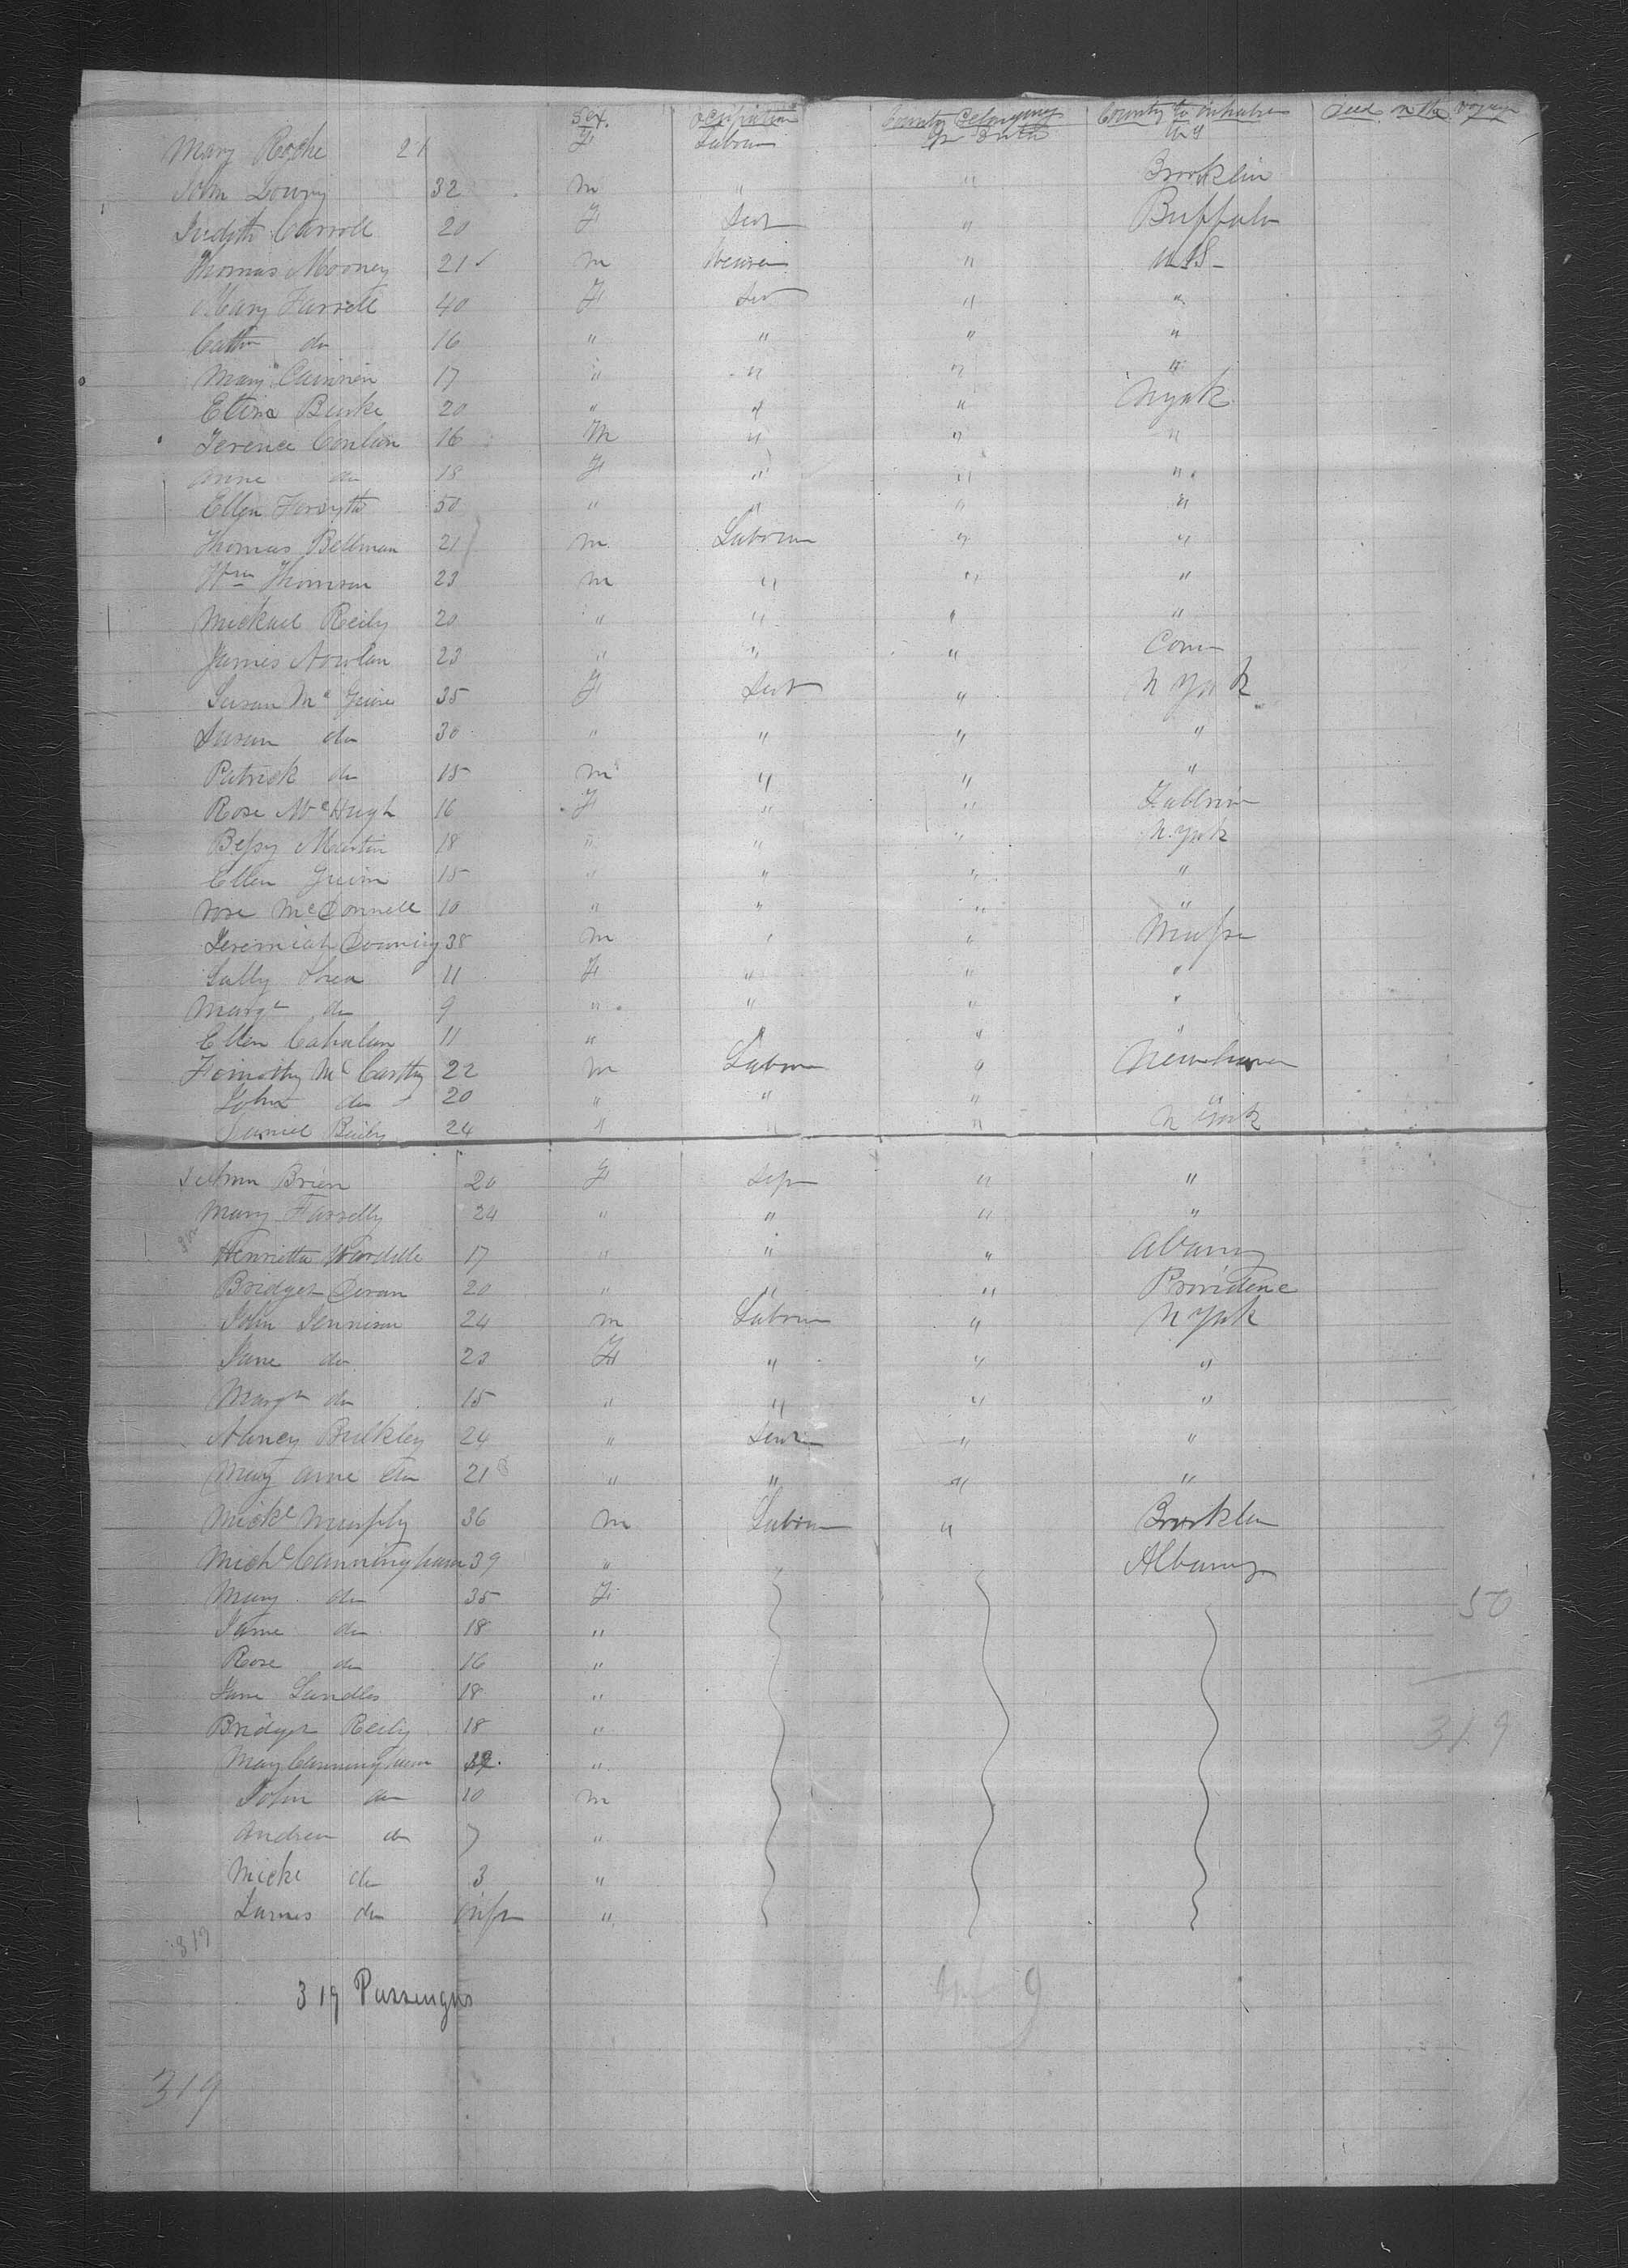 Sex. Occupation Country Belonging Country to inhabit Died on the Voyage
Mary Roche 21 F Labourer Gr Britn NY
John Downy 32 m " " Brooklin
Judith Carroll 20 F Servt " Buffalo
Thomas Mooney 21 m Weaver " US
Mary Farrell 40 F Servt " "
Cathn do 16 " " " "
Mary 17 " " " "
Eliza Burke 20 " " " NYork
Terence Conlan 16 M " " "
Anne do 18 F " " "
Ellen Forsyth 50 " " " "
Thomas Bellman 21 m Labourer " "
Wm Thomson 23 m " " "
Michael Reily 20 " " " "
James Nowlan 23 " " " Conn
Susan Mc Guire 35 F Servt " N York
Susan do 30 " " " "
Patrick do 15 m " " "
Rose McHugh 16 F " "
Bessy Martin 18 " " " N. York
Ellen 15 " " " "
Rose McDonnell 10 " " " "
Jeremiah Downing 38 m " "
Sally Shea 11 F " " "
Margt do 9 " " " "
Ellen Cahalan 11 " " "
Timothy Mc Carthy 22 m Labour " Newhaven
John do 20 " " " "
Daniel Baily 24 " " " N York
Brien 20 F " "
Mary Farrelly 24 " " " "
Henrietta 17 " " " Albany
Bridget Doran 20 " " " Providence
John Jennison 24 m Labour " N York
Jane do 23 F " " "
Margt do 15 " " " "
Nancy Bulkley 24 " Servt " "
Mary Anne do 21 " " " "
Michl Murphy 36 m Labour " Brooklin
Michl Cunningham 39 " " Albany
Mary do 35 F
Jane do 18 "
50
Rose do 16 "
Jane 18 "
Bridget Reily 18 "
319
Mary Cunningham "
John do 10 m
Andrew do 7 "
Michl do 3 "
James do infn "
319
319 Passengers
9
319